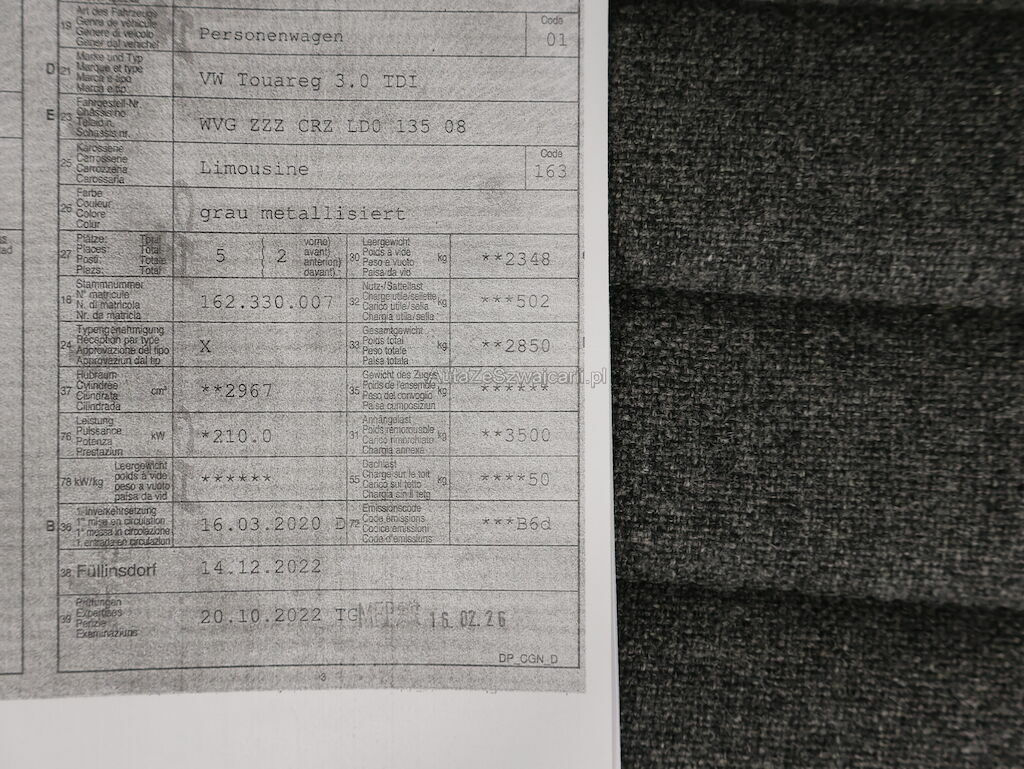 19 Art des Fahrzeugs
Genre de véhicule
Genere di veicolo
Gener dal vehichel
Personenwagen
Code
01
D 21 Marke und Typ
Marque et type
Marca e tipo
Marca e tip
VW Touareg 3.0 TDI
E 23 Fahrgestell-Nr.
Châssis no
Telaio n.
Schassis nr.
WVG ZZZ CRZ LD0 135 08
25 Karosserie
Carrosserie
Carrozzeria
Carossaria
Limousine
Code
163
26 Farbe
Couleur
Colore
Colur
grau metallisiert
27 Plätze: Total
Places: Total
Posti: Totale
Plazs: Total
5 ( 2
vorne)
avant)
anteriori)
davant)
30 Leergewicht
Poids à vide
Peso a vuoto
Paisa da vid
kg
**2348
18 Stammnummer
N° matricule
N. di matricola
Nr. da matricla
162.330.007
32 Nutz-/Sattellast
Charge utile/sellette
Carico utile/sella
Chargia utila/sella
kg
***502
24 Typengenehmigung
Réception par type
Approvazione del tipo
Approvaziun dal tip
X
33 Gesamtgewicht
Poids total
Peso totale
Paisa totala
kg
**2850
37 Hubraum
Cylindrée
Cilindrata
Cilindrada
cm³
**2967
35 Gewicht des Zuges
Poids de l'ensemble
Peso del convoglio
Paisa cumposiziun
kg
******
AutaZeSzwajcarii.pl
76 Leistung
Puissance
Potenza
Prestaziun
kW
*210.0
31 Anhängelast
Poids remorquable
Carico rimorchiato
Chargia annexa
kg
**3500
78 kW/kg
Leergewicht
poids à vide
peso a vuoto
paisa da vid
******
55 Dachlast
Charge sur le toit
Carico sul tetto
Chargia sin il tetg
kg
****50
B 36 1. Inverkehrsetzung
1re mise en circulation
1a messa in circolazione
1. entrada en circulaziun
16.03.2020 D
72 Emissionscode
Code émissions
Codice emissioni
Code d'emissiuns
***B6d
38 Füllinsdorf
14.12.2022
39 Prüfungen
Expertises
Perizie
Examinaziuns
20.10.2022 TG
16.02.26
DP_CGN_D
3